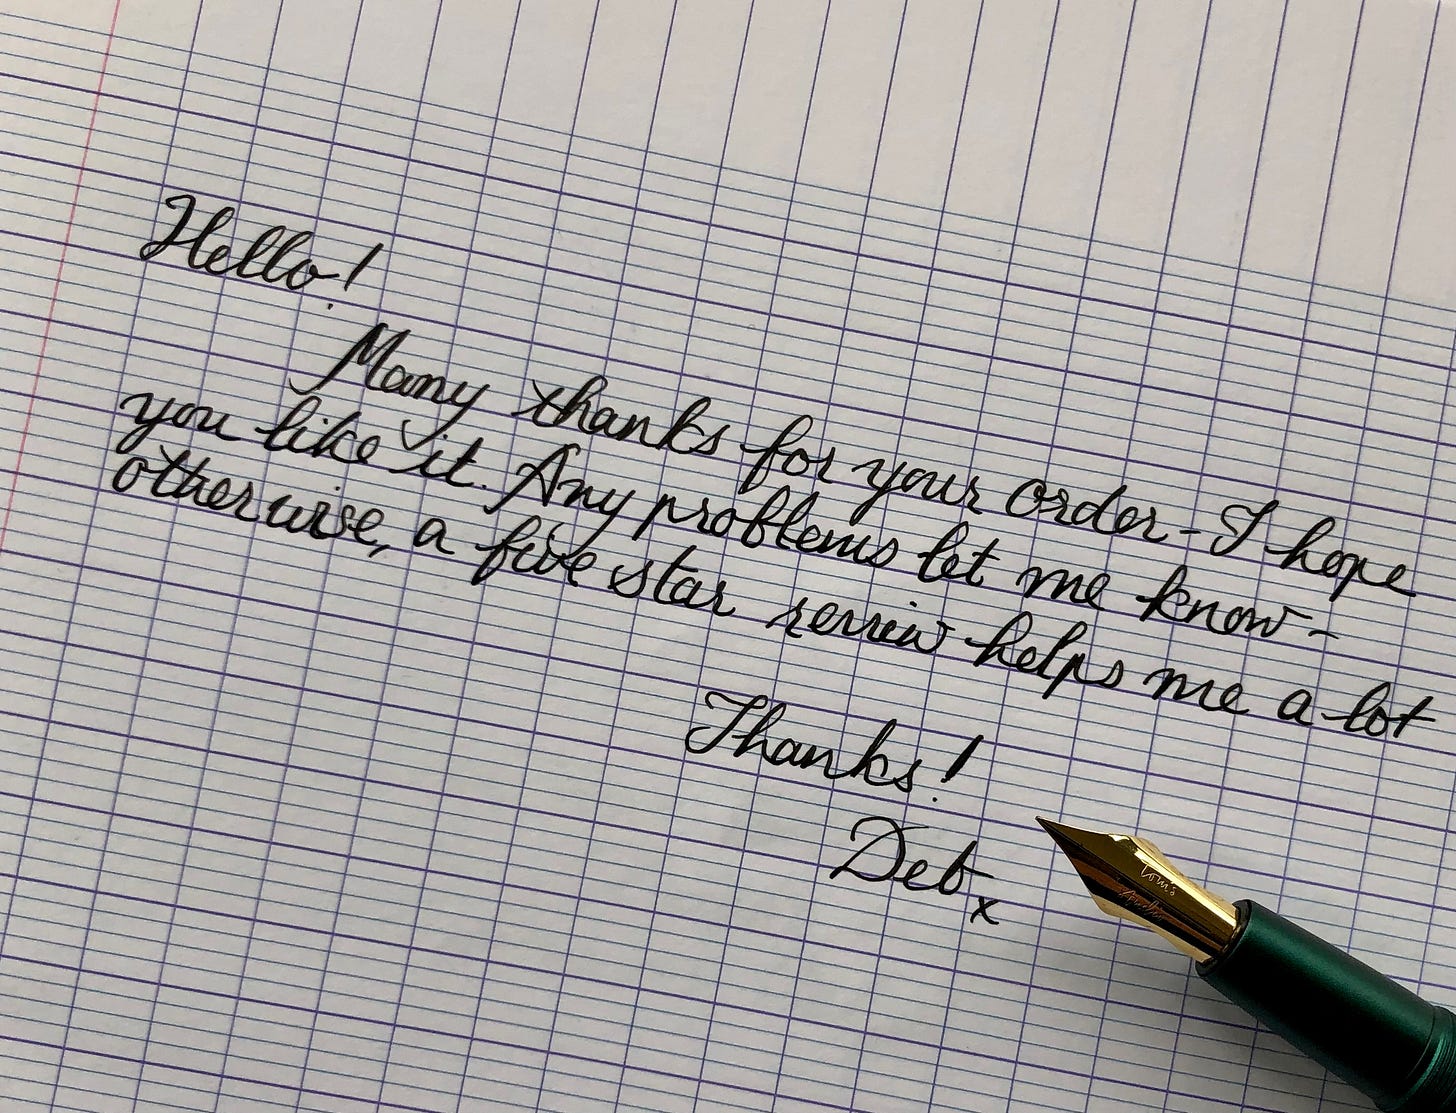 Hello!
Many thanks for your order - I hope
you like it. Any problems let me know -
otherwise, a five star review helps me a lot
Thanks!
Deb x
tom's
studio